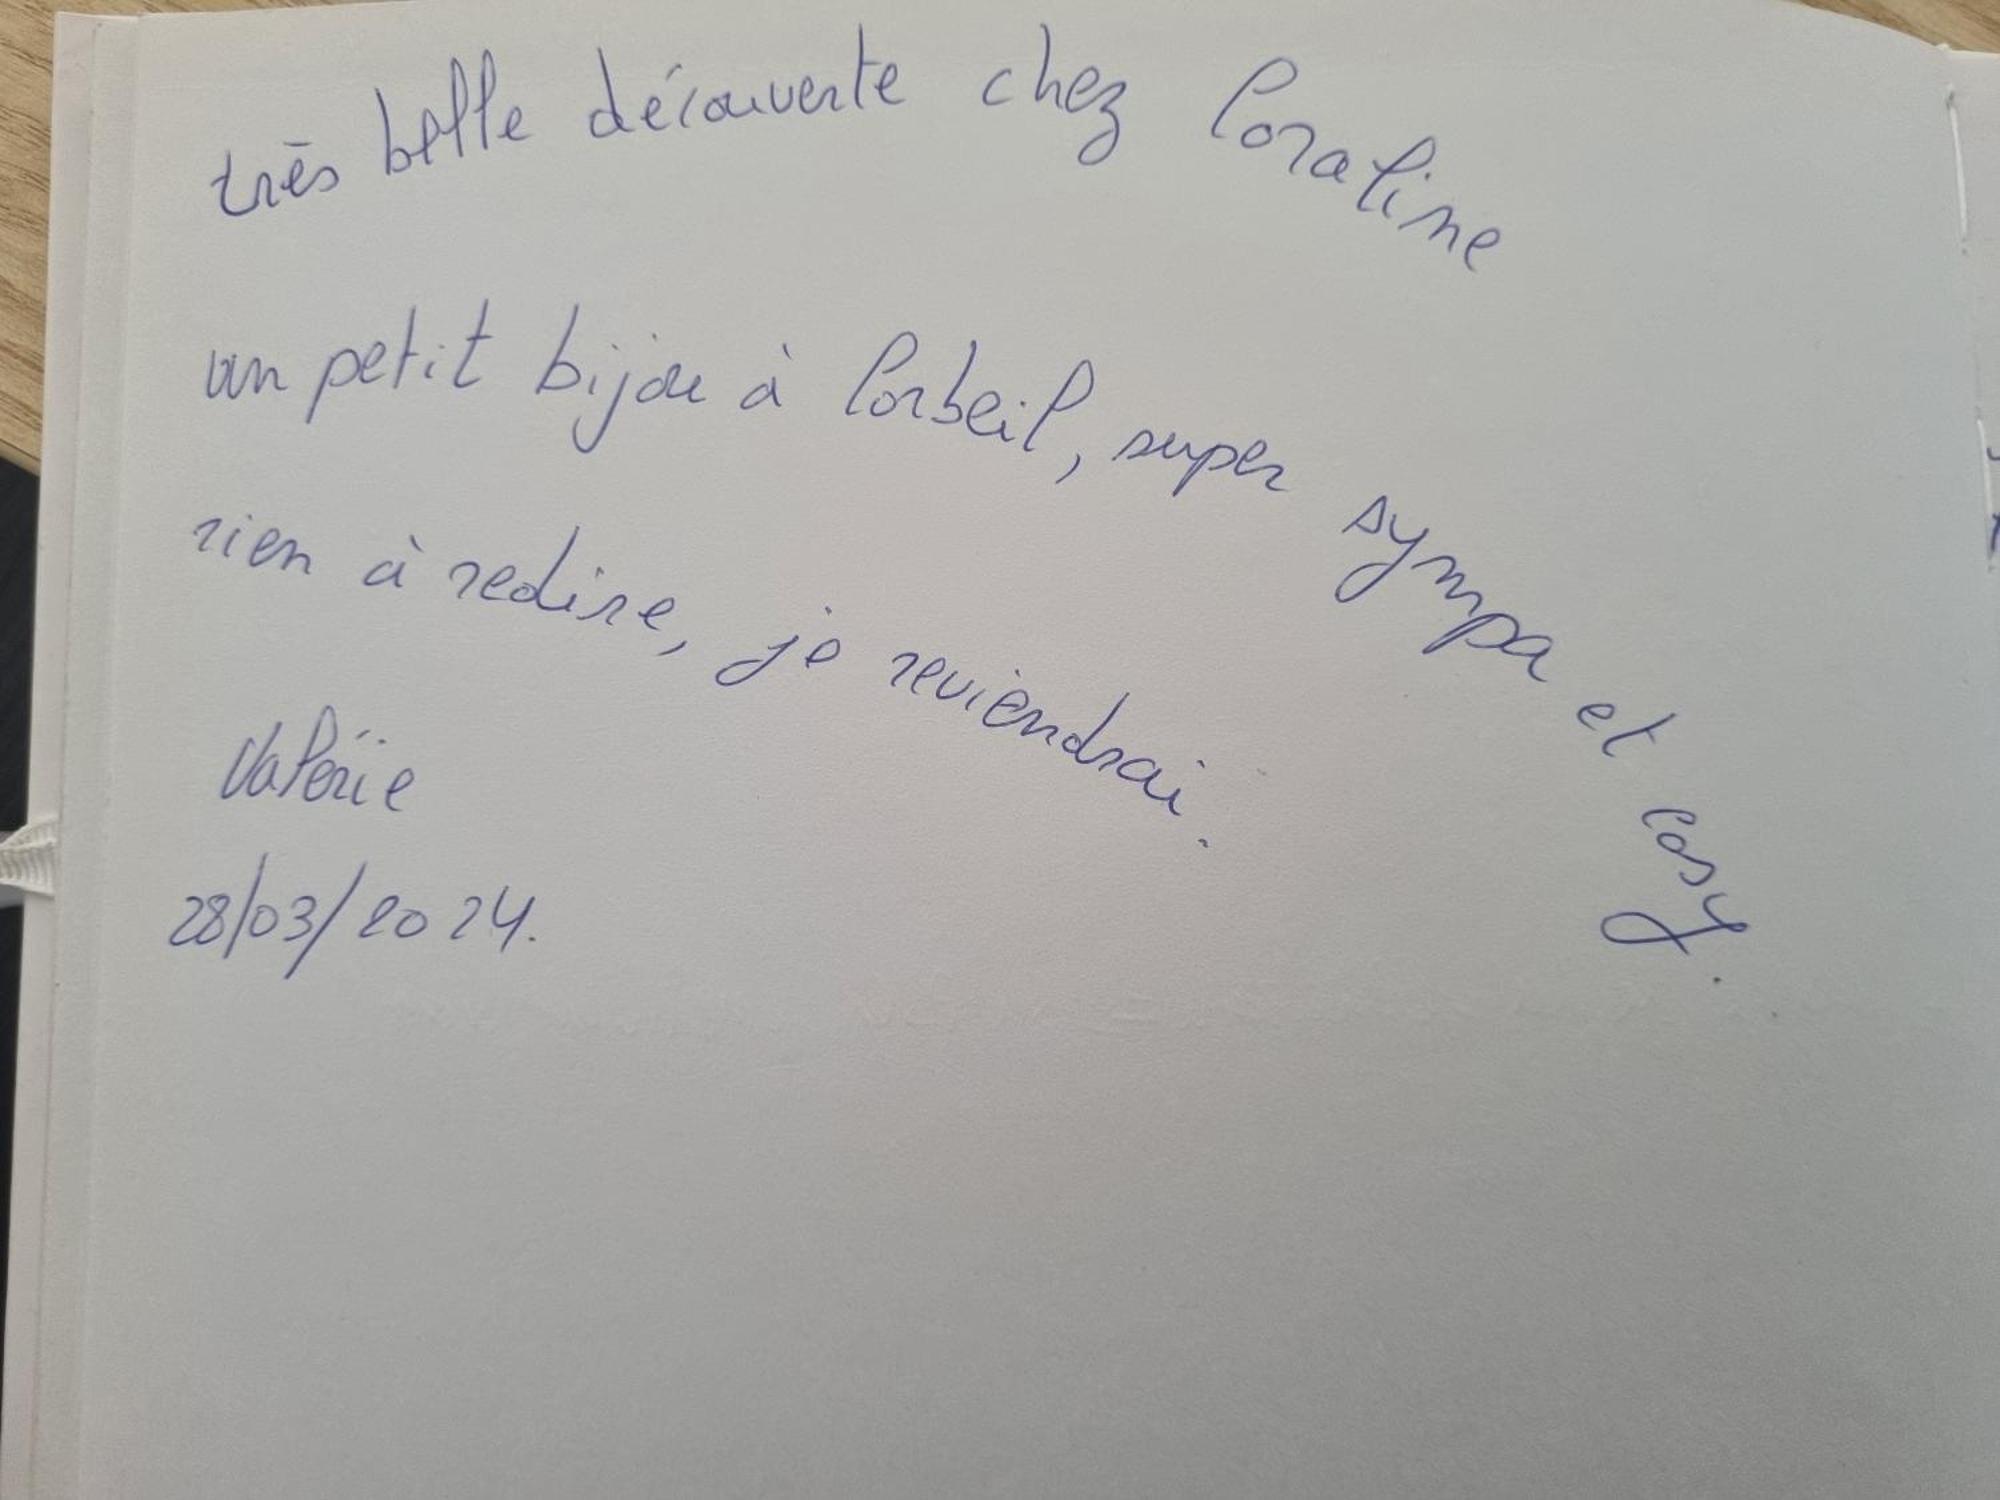 très belle découverte chez Coraline
un petit bijou à Corbeil, super sympa et cosy.
rien à redire, je reviendrai.
Valérie
28/03/2024.